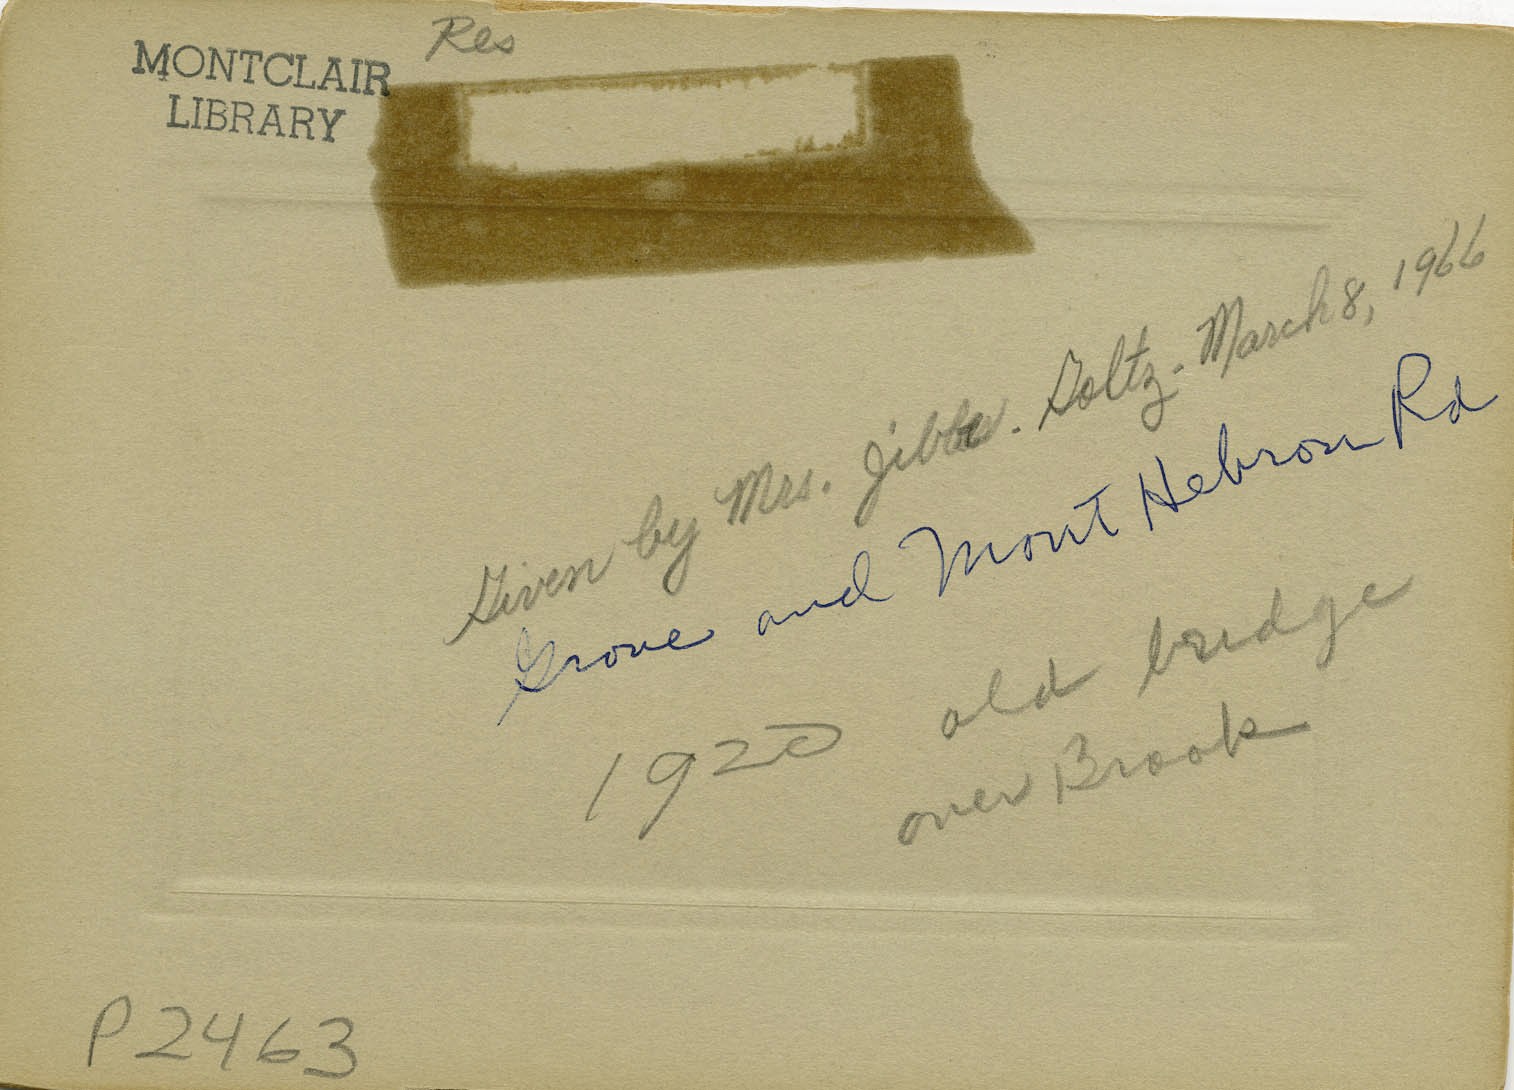 Res
MONTCLAIR
LIBRARY
Given by Mrs. Goltz. March 8, 1966
Grove and Mont Hebron Rd
1920 old bridge
over Brook
P2463